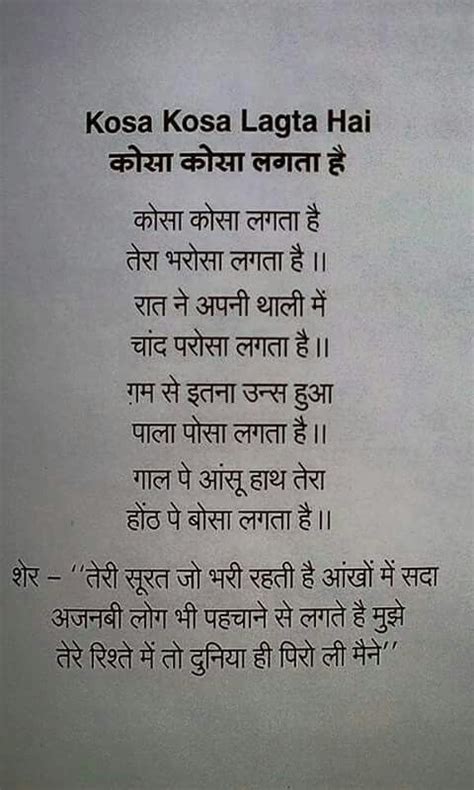 Kosa Kosa Lagta Hai
कोसा कोसा लगता है
कोसा कोसा लगता है
तेरा भरोसा लगता है ।।
रात ने अपनी थाली में
चांद परोसा लगता है ।।
ग़म से इतना उन्स हुआ
पाला पोसा लगता है ।।
गाल पे आंसू हाथ तेरा
होंठ पे बोसा लगता है ।।
शेर – ‘‘तेरी सूरत जो भरी रहती है आंखों में सदा
अजनबी लोग भी पहचाने से लगते है मुझे
तेरे रिश्ते में तो दुनिया ही पिरो ली मैने’’